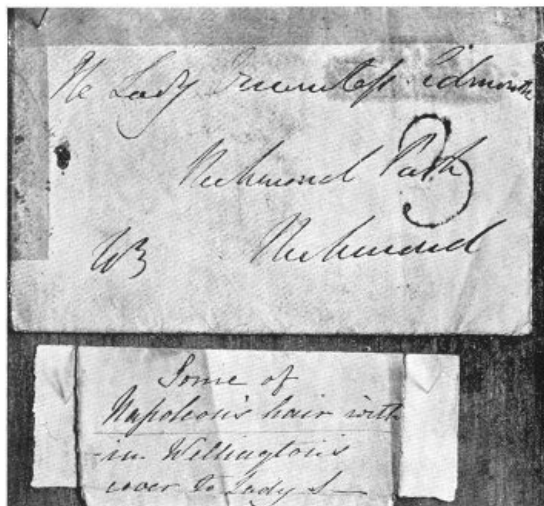 The Lady Viscountess Sidmouth
Richmond Park
3
Richmond
Some of
Napoleon's hair with
in Wellington's
cover to Lady S—